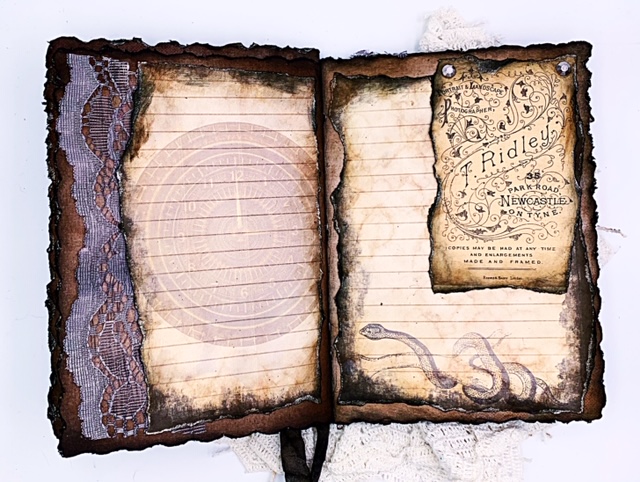 PORTRAIT & LANDSCAPE
PHOTOGRAPHER.
T. Ridley,
35
PARK ROAD,
NEWCASTLE
ON TYNE.
COPIES MAY BE HAD AT ANY TIME
AND ENLARGEMENTS
MADE AND FRAMED.